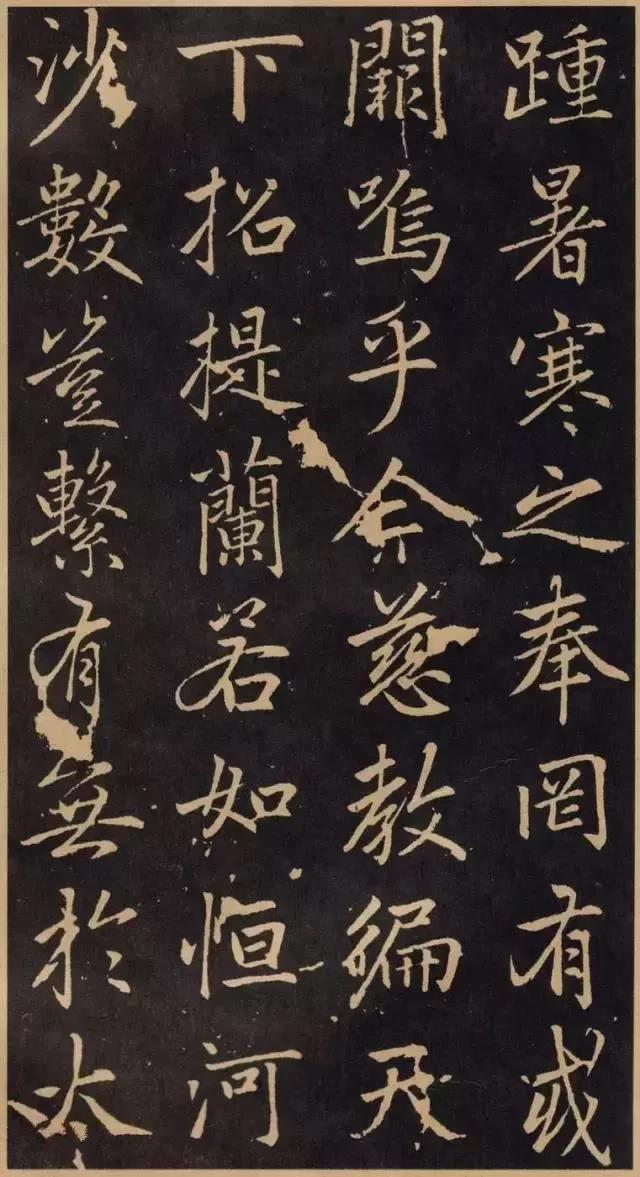 踵暑寒之奉罔有或
闕嗚乎慈教徧天
下招提蘭若如恒河
沙數豈繫有無於太